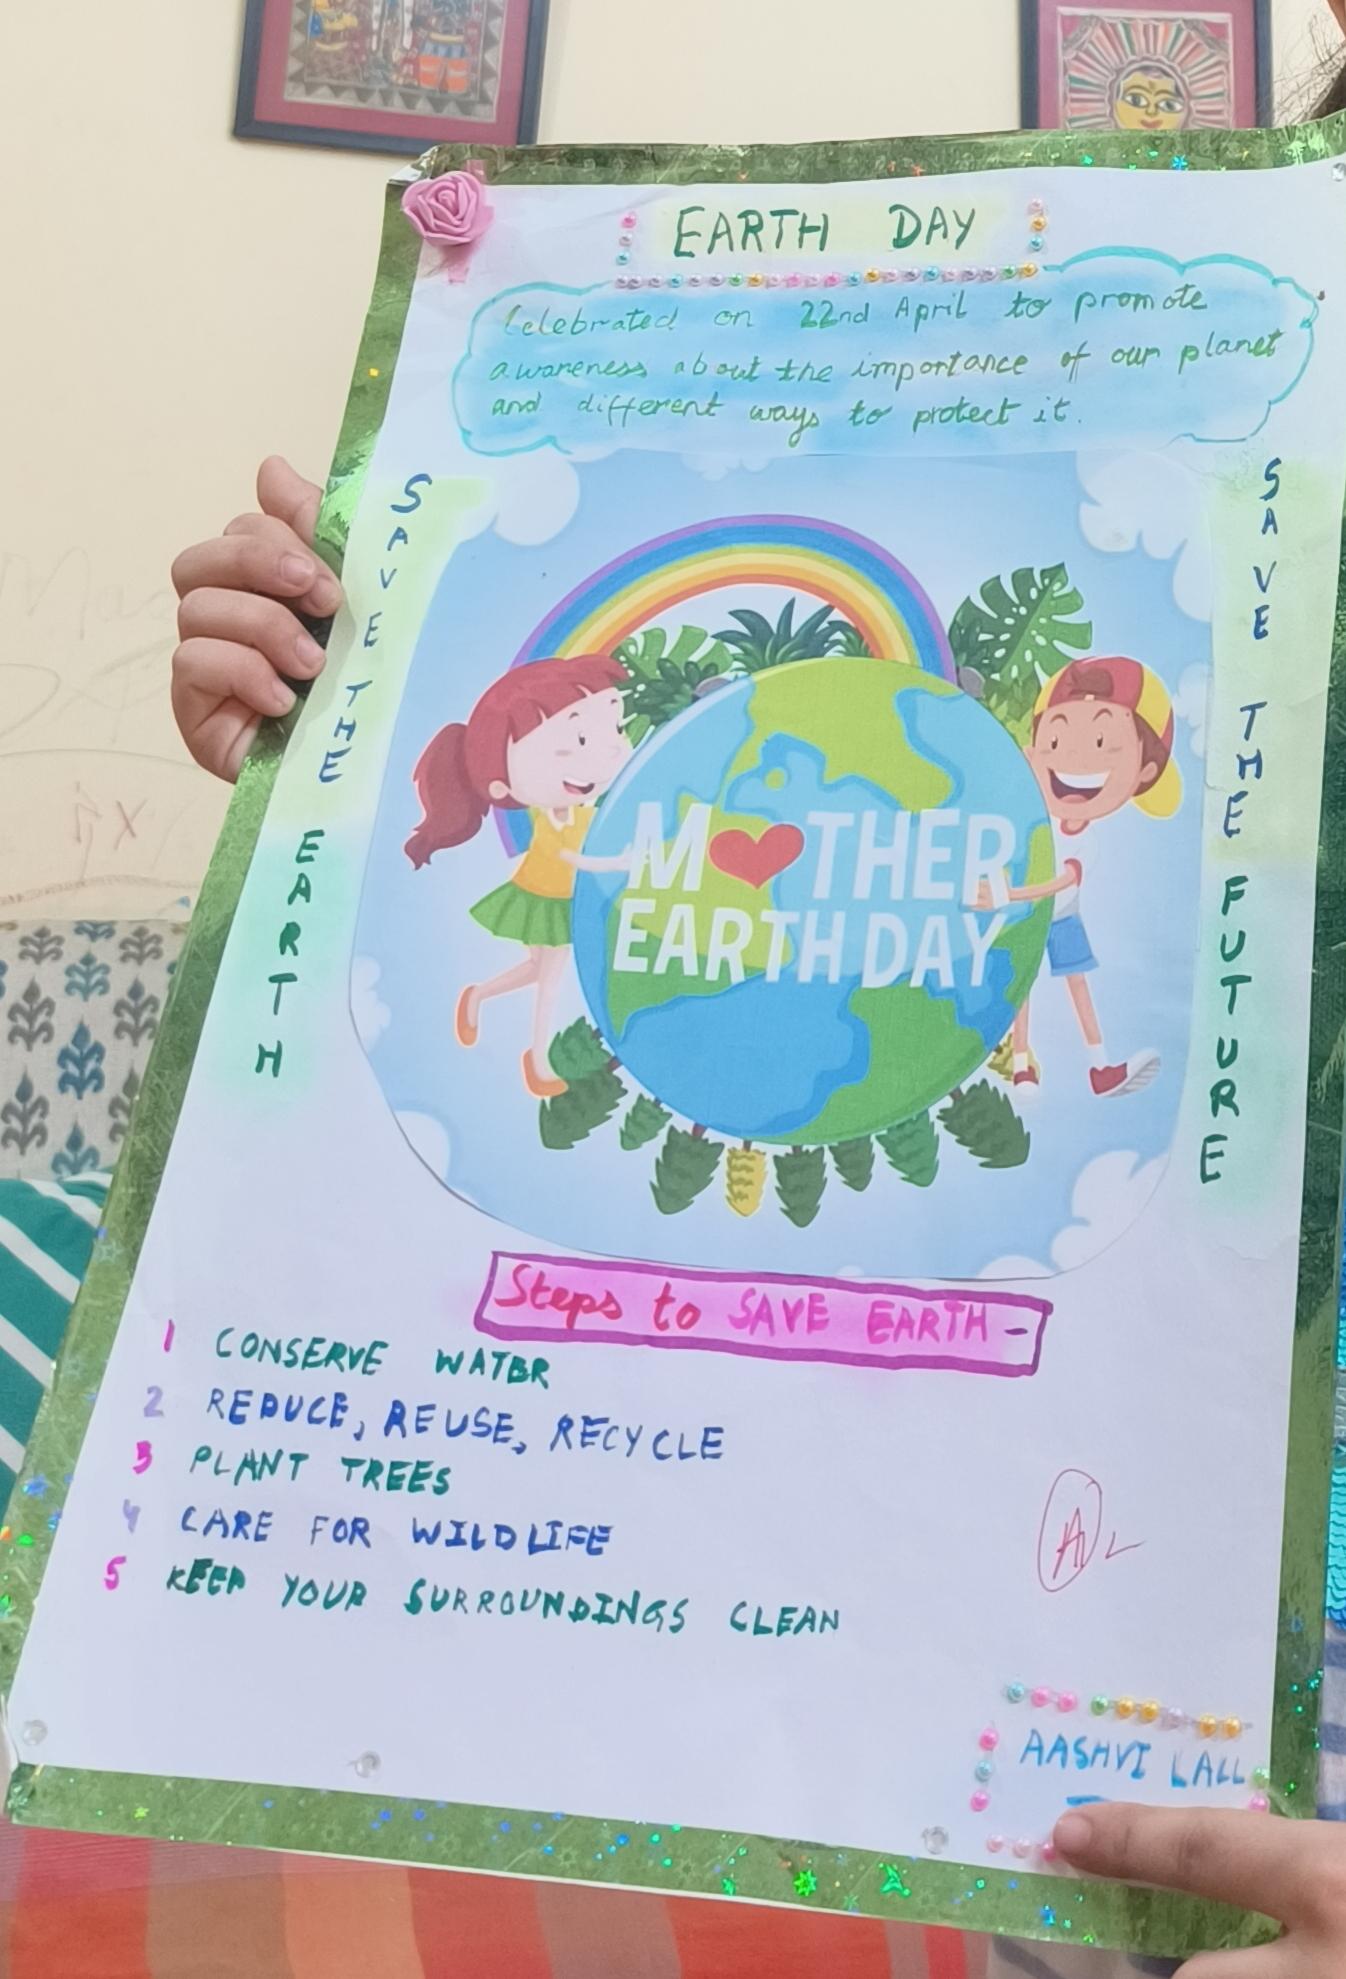 EARTH DAY
Celebrated on 22nd April to promote
awareness about the importance of our planet
and different ways to protect it.
SAVE THE EARTH
SAVE THE FUTURE
M THER
EARTH DAY
Steps to SAVE EARTH -
1 CONSERVE WATER
2 REDUCE, REUSE, RECYCLE
3 PLANT TREES
4 CARE FOR WILDLIFE
5 KEEP YOUR SURROUNDINGS CLEAN
A
AASHVI LALL